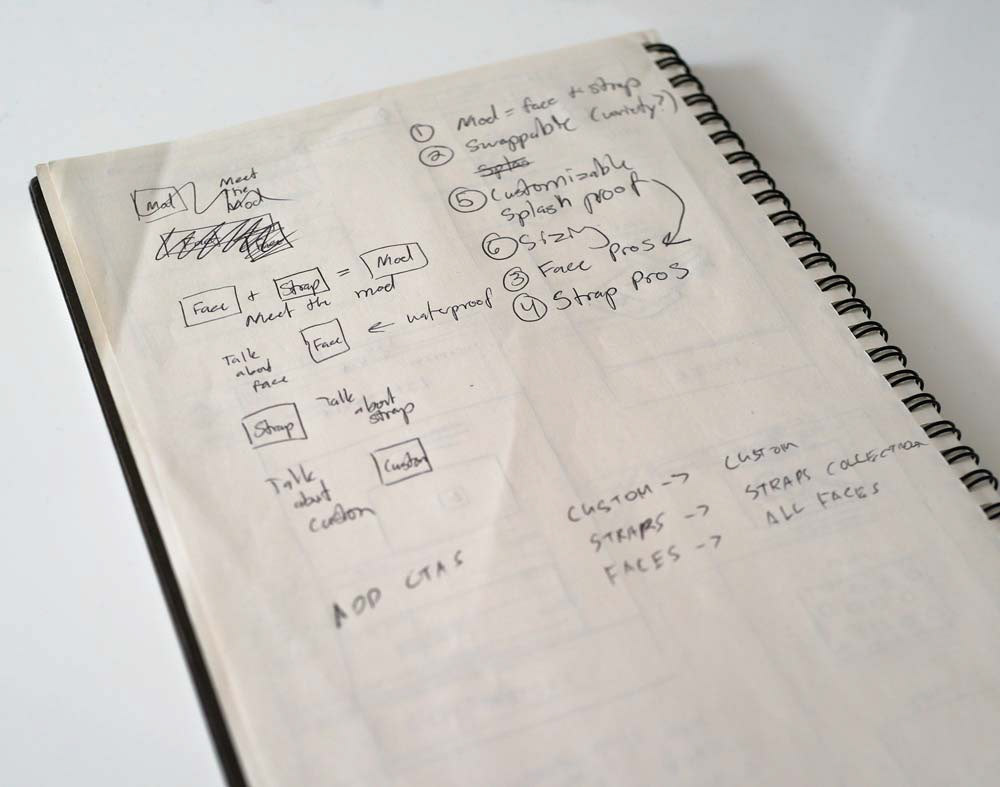 Mod
Meet
the
Mod
Face + Strap = Mod
Meet the mod
Face ← waterproof
Talk
about
face
Strap
Talk
about
strap
Custom
Talk
about
custom
ADD CTAS
① Mod = face + strap
② Swappable (variety?)
Splas
⑤ Customizable
splash proof
⑥ Sizing
③ Face pros
④ Strap pros
CUSTOM -> CUSTOM
STRAPS -> STRAPS COLLECTION
FACES -> ALL FACES